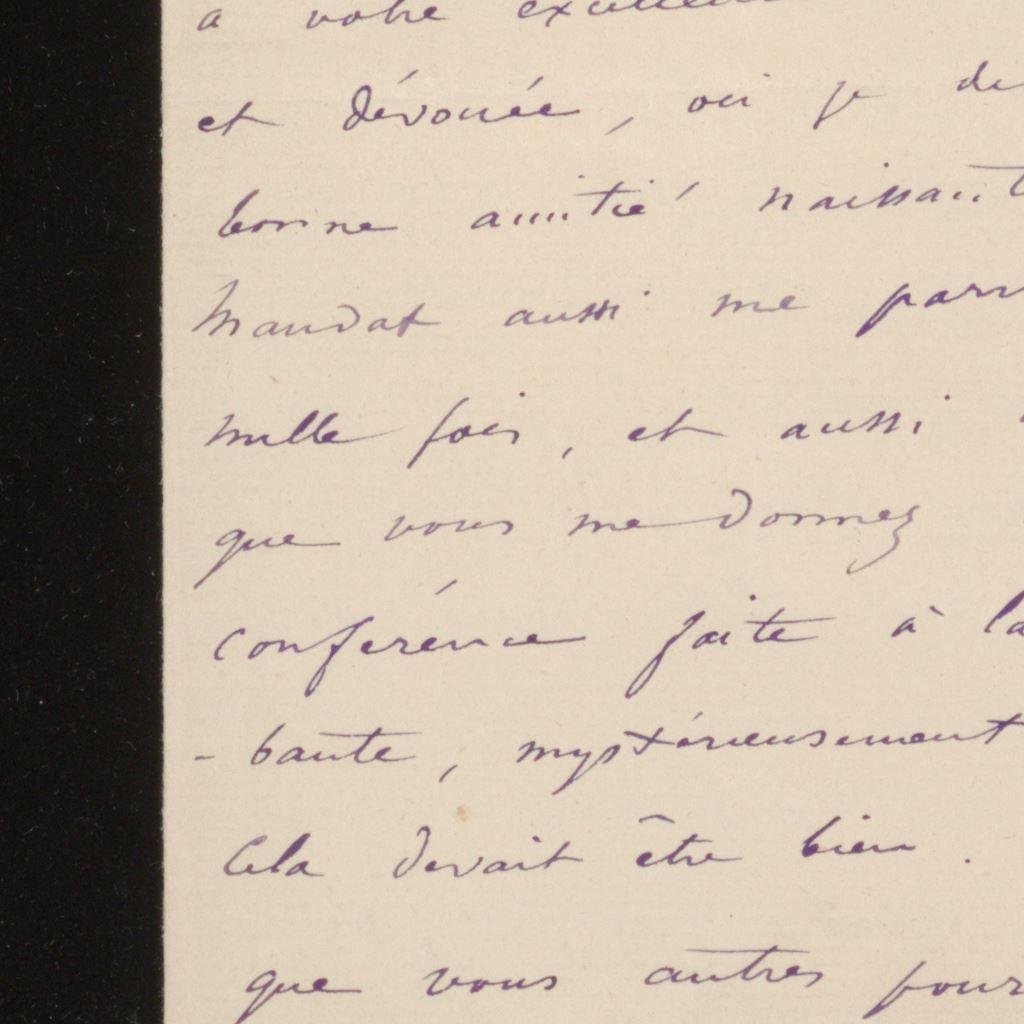 a votre
et dévouée, où je
bonne amitié naissant
Mandat aussi me
mille fois, et aussi
que vous me donnez
conférence faite à la
- bante, mystérieusement
Cela devait être bien.
que vous autres pour